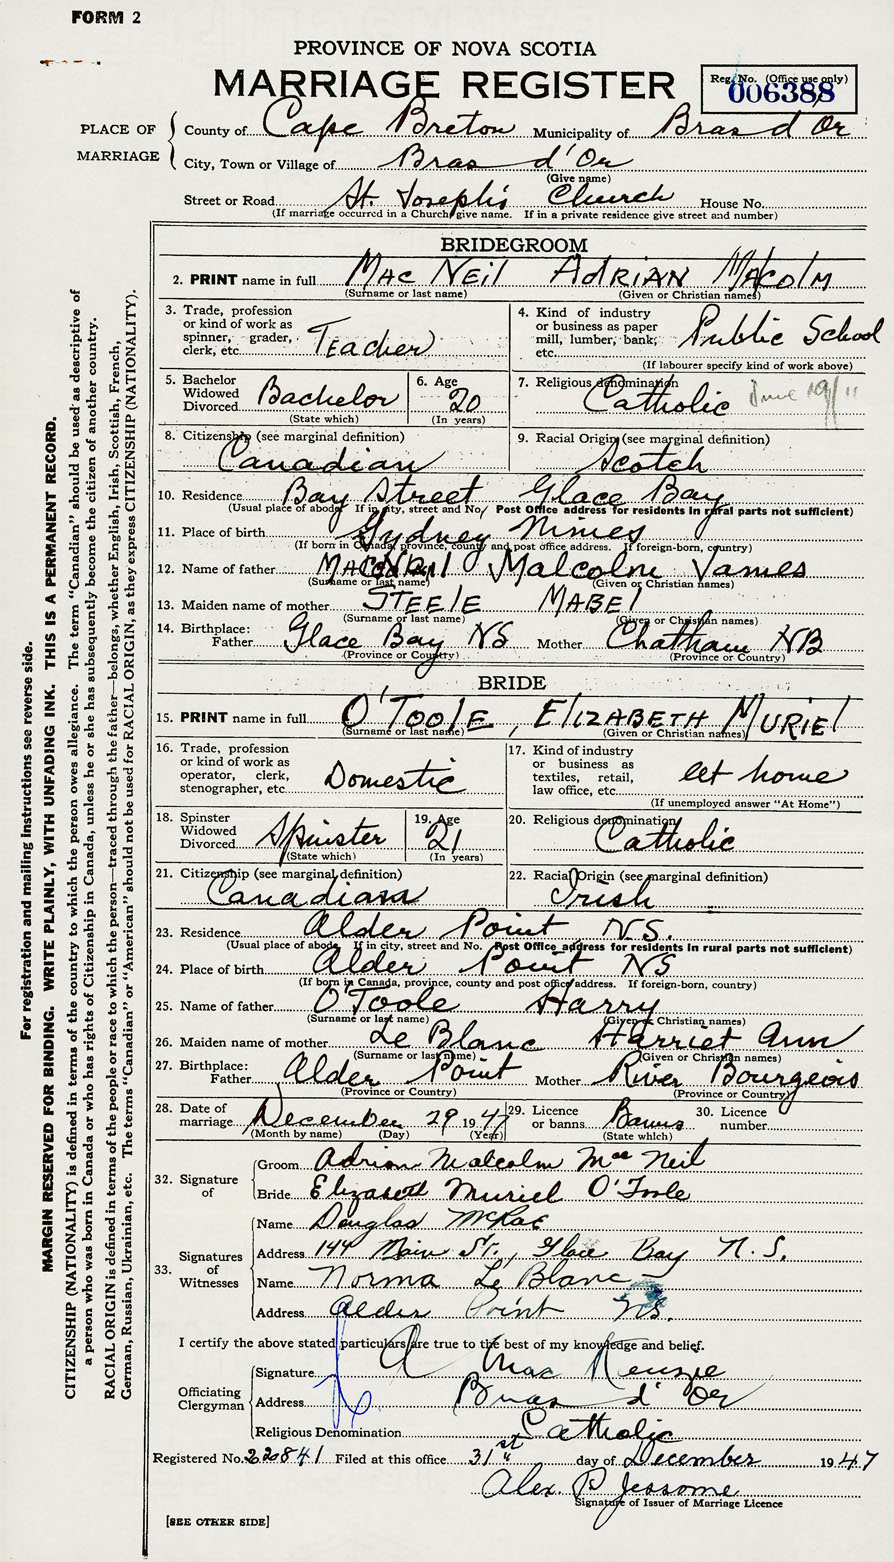 FORM 2
PROVINCE OF NOVA SCOTIA
MARRIAGE REGISTER
Reg. No. (Office use only)
006388
PLACE OF MARRIAGE
County of Cape Breton Municipality of Bras d'Or
City, Town or Village of Bras d'Or
(Give name)
Street or Road St. Joseph's Church House No.
(If marriage occurred in a Church give name. If in a private residence give street and number)
BRIDEGROOM
2. PRINT name in full MacNeil Adrian Malcolm
(Surname or last name) (Given or Christian names)
3. Trade, profession or kind of work as spinner, grader, clerk, etc. Teacher
4. Kind of industry or business as paper mill, lumber, bank, etc. Public School
(If labourer specify kind of work above)
5. Bachelor Widowed Divorced Bachelor
(State which)
6. Age 20
(In years)
7. Religious denomination Catholic
8. Citizenship (see marginal definition)
Canadian
9. Racial Origin (see marginal definition)
Scotch
10. Residence Bay Street Glace Bay
(Usual place of abode. If in city, street and No. Post Office address for residents in rural parts not sufficient)
11. Place of birth Sydney Mines
(If born in Canada, province, county and post office address. If foreign-born, country)
12. Name of father MacNeil Malcolm James
(Surname or last name) (Given or Christian names)
13. Maiden name of mother STEELE MABEL
(Surname or last name) (Given or Christian names)
14. Birthplace: Father Glace Bay NS Mother Chatham NB
(Province or Country) (Province or Country)
BRIDE
15. PRINT name in full O'TOOLE, ELIZABETH MURIEL
(Surname or last name) (Given or Christian names)
16. Trade, profession or kind of work as operator, clerk, stenographer, etc. Domestic
17. Kind of industry or business as textiles, retail, law office, etc. at home
(If unemployed answer "At Home")
18. Spinster Widowed Divorced Spinster
(State which)
19. Age 21
(In years)
20. Religious denomination Catholic
21. Citizenship (see marginal definition)
Canadian
22. Racial Origin (see marginal definition)
Irish
23. Residence Alder Point N.S.
(Usual place of abode. If in city, street and No. Post Office address for residents in rural parts not sufficient)
24. Place of birth Alder Point NS
(If born in Canada, province, county and post office address. If foreign-born, country)
25. Name of father O'Toole Harry
(Surname or last name) (Given or Christian names)
26. Maiden name of mother Le Blanc Harriet Ann
(Surname or last name) (Given or Christian names)
27. Birthplace: Father Alder Point Mother River Bourgeois
(Province or Country) (Province or Country)
28. Date of marriage December 29 1947
(Month by name) (Day) (Year)
29. Licence or banns Banns
(State which)
30. Licence number
32. Signature of
Groom Adrian Malcolm MacNeil
Bride Elizabeth Muriel O'Toole
33. Signatures of Witnesses
Name Douglas McRae
Address 144 Main St., Glace Bay N.S.
Name Norma Le Blanc
Address Alder Point NS.
I certify the above stated particulars are true to the best of my knowledge and belief.
Officiating Clergyman
Signature A MacKenzie
Address Bras d'Or
Religious Denomination Catholic
Registered No. 22841 Filed at this office 31st day of December 1947
Alex P Jessome
Signature of Issuer of Marriage Licence
[SEE OTHER SIDE]
For registration and mailing instructions see reverse side.
MARGIN RESERVED FOR BINDING. WRITE PLAINLY, WITH UNFADING INK. THIS IS A PERMANENT RECORD.
CITIZENSHIP (NATIONALITY) is defined in terms of the country to which the person owes allegiance. The term "Canadian" should be used as descriptive of
a person who was born in Canada or who has rights of Citizenship in Canada, unless he or she has subsequently become the citizen of another country.
RACIAL ORIGIN is defined in terms of the people or race to which the person—traced through the father—belongs, whether English, Irish, Scottish, French,
German, Russian, Ukrainian, etc. The terms "Canadian" or "American" should not be used for RACIAL ORIGIN, as they express CITIZENSHIP (NATIONALITY).